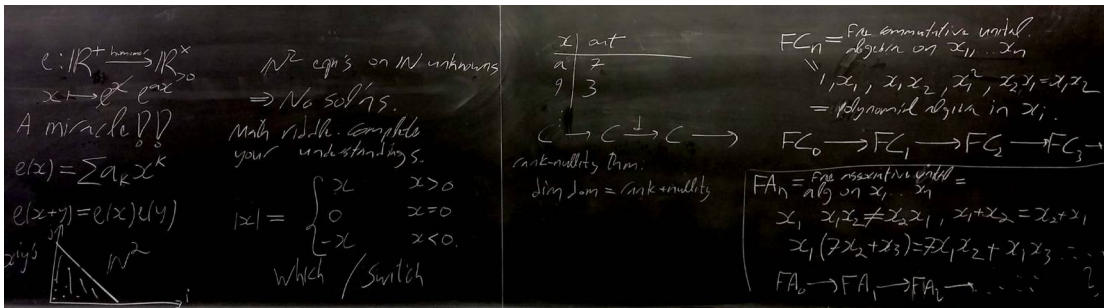 e: ℝ⁺ —homomor→ ℝ^×_{>0}
x ↦ eˣ e^{ax}
A miracle!!
e(x) = Σ a_k x^k
e(x+y) = e(x)e(y)
xⁱyʲ's
j
ℕ²
i
ℕ² eqn's on ℕ unknowns
⇒ No sol'ns.
Math riddle. Complete
your understandings.
|x| = { x x>0
0 x=0
-x x<0.
which / switch
x | out
a | 7
9 | 3
C → C →¹ C →
rank-nullity thm.
dim dom = rank + nullity
FCₙ = Free commutative unital
algebra on x₁, ... xₙ
1, x₁, x₁x₂, x₁², x₂x₁=x₁x₂
= polynomial algebra in xᵢ.
FC₀ → FC₁ → FC₂ → FC₃ →
FAₙ = Free associative unital
alg on x₁ ... xₙ =
x₁ x₁x₂ ≠ x₂x₁, x₁+x₂ = x₂+x₁
x₁(7x₂+x₃) = 7x₁x₂ + x₁x₃ ....
FA₀ → FA₁ → FA₂ → ....